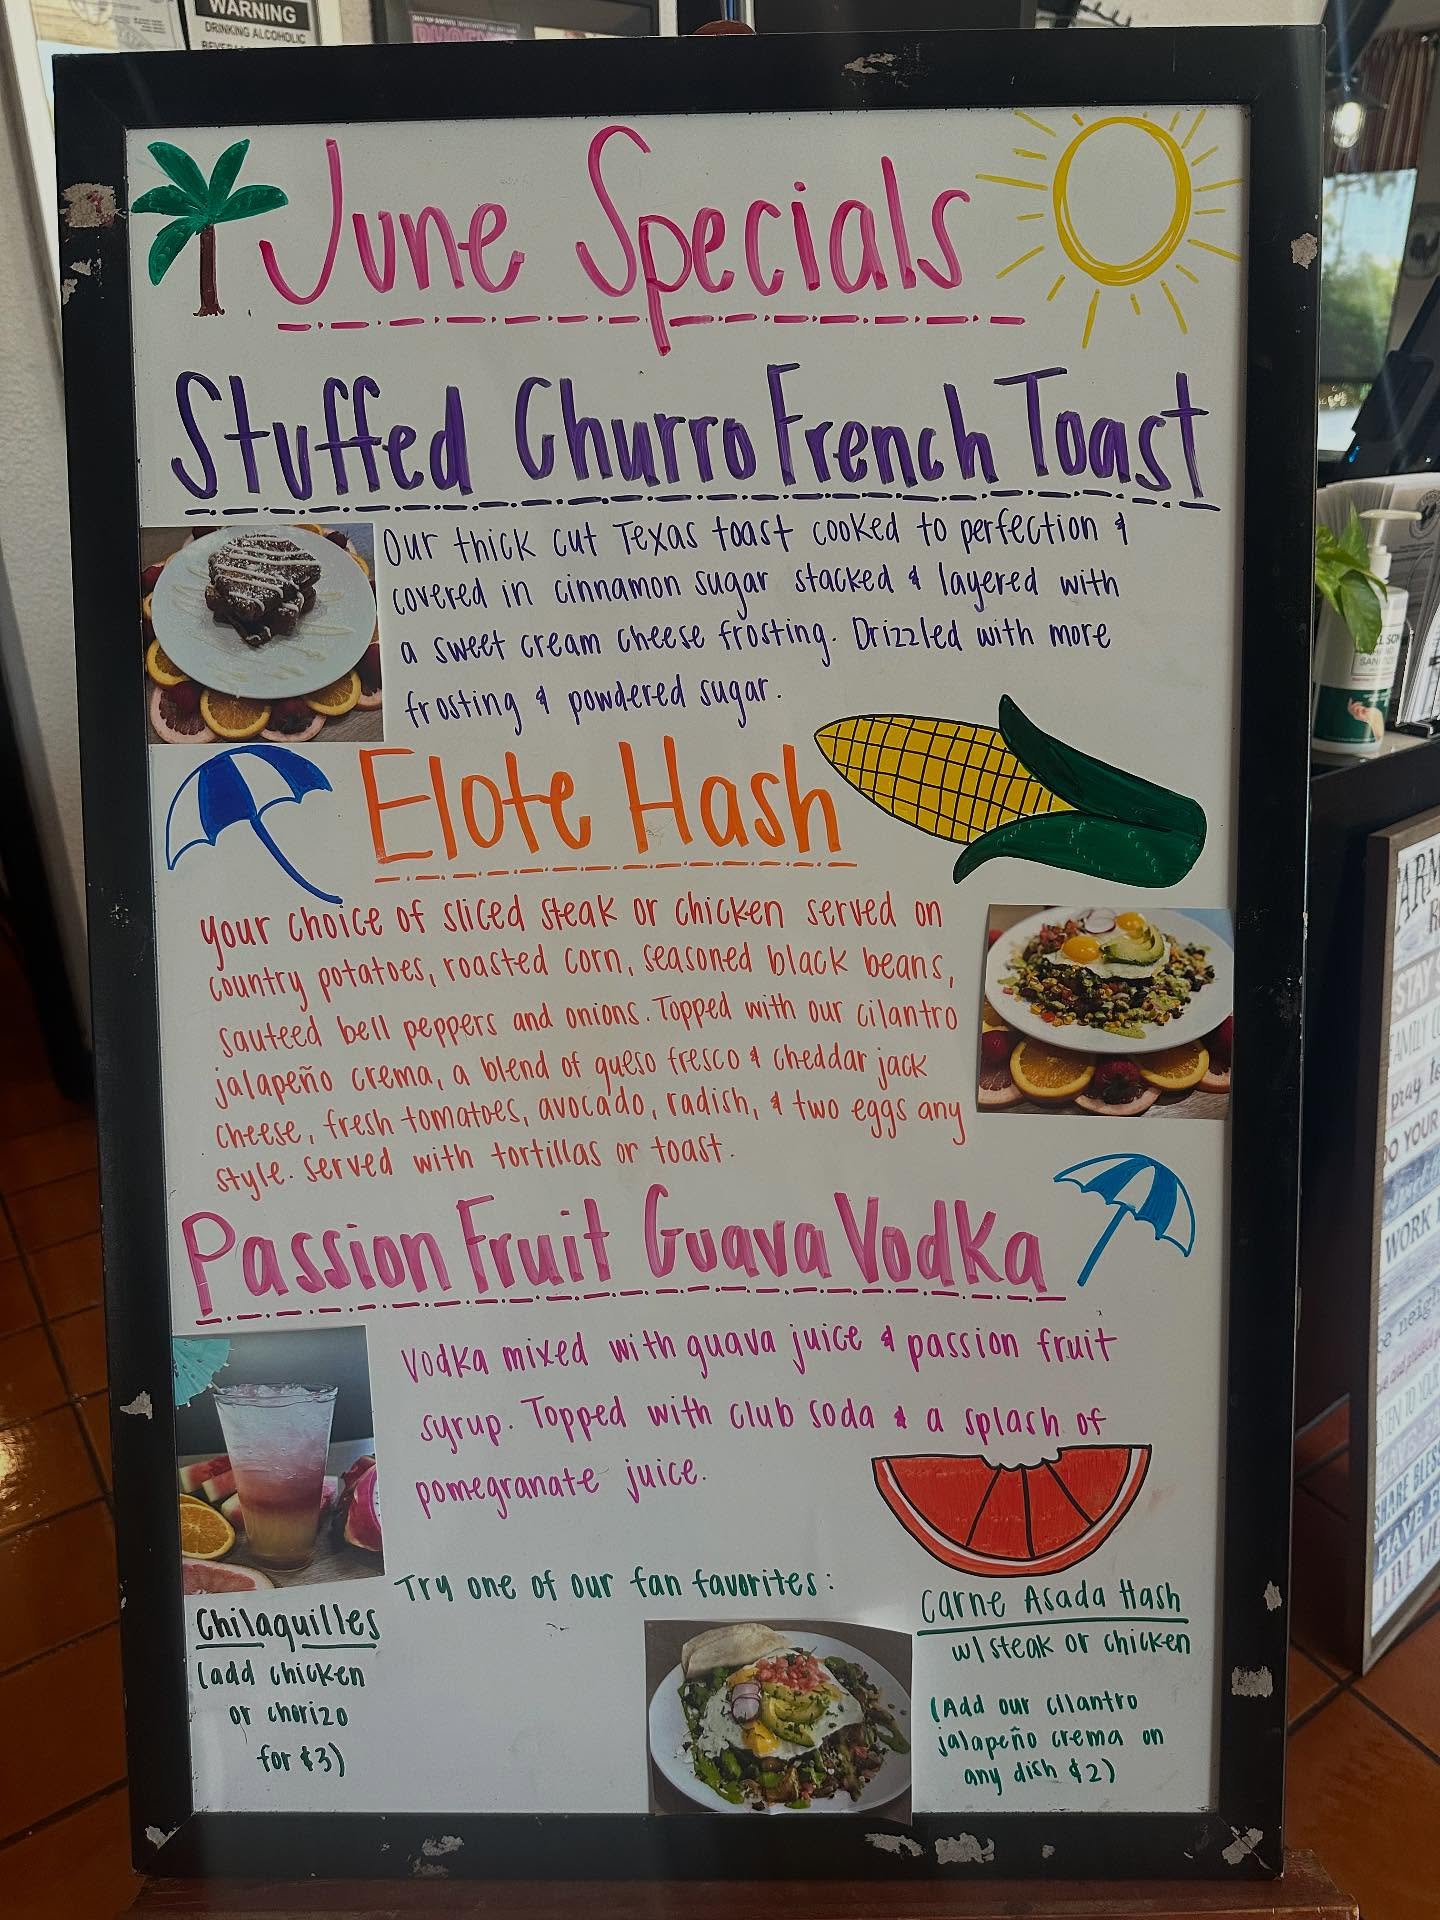 WARNING
DRINKING ALCOHOLIC
June Specials
Stuffed Churro French Toast
Our thick cut Texas toast cooked to perfection &
covered in cinnamon sugar stacked & layered with
a sweet cream cheese frosting. Drizzled with more
frosting & powdered sugar.
Elote Hash
your choice of sliced steak or chicken served on
country potatoes, roasted corn, seasoned black beans,
sauteed bell peppers and onions. Topped with our cilantro
jalapeño crema, a blend of queso fresco & cheddar jack
cheese, fresh tomatoes, avocado, radish, & two eggs any
style. Served with tortillas or toast.
Passion Fruit Guava Vodka
Vodka mixed with guava juice & passion fruit
syrup. Topped with club soda & a splash of
pomegranate juice.
Try one of our fan favorites:
Chilaquilles
(add chicken
or chorizo
for $3)
Carne Asada Hash
w/ steak or chicken
(Add our cilantro
jalapeño crema on
any dish $2)
STAY
pray
DO YOUR
WORK
SHARE
HAVE
LIVE